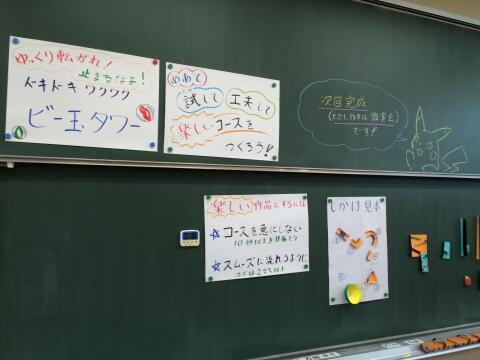 ゆっくり転がれ!
止まるなよ!
ドキドキ ワクワク
ビー玉タワー
めあて
試して 工夫して
楽しいコースを
つくろう!
次回完成
です!
楽しい作品にするには
☆コースを急にしない
☆スムーズに流れるように
しかけ見本